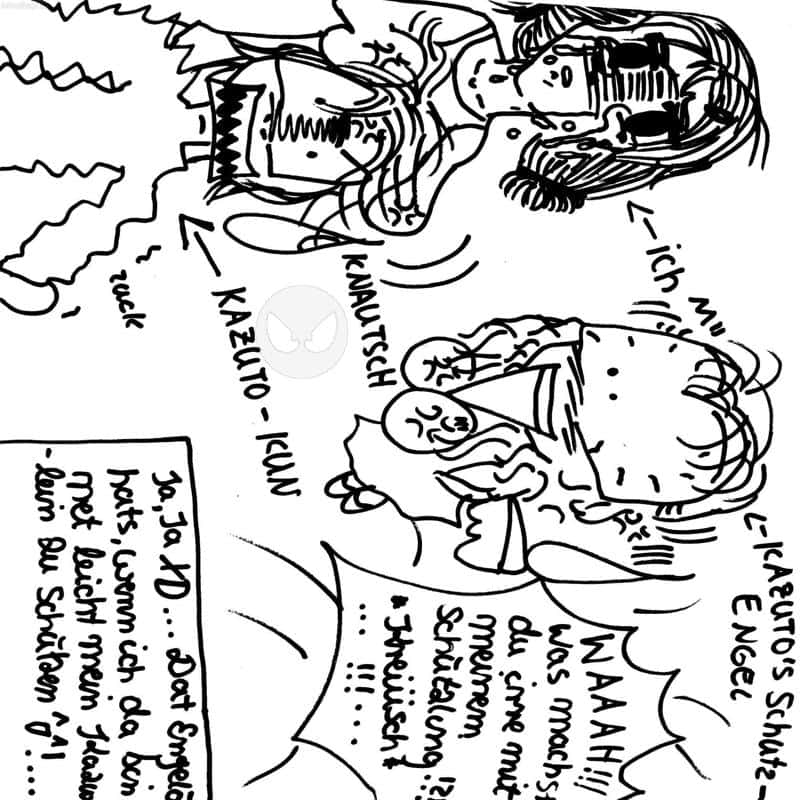 <-ich
KNAUTSCH
<- KAZUTO-KUN
zuck
<-KAZUTO'S Schutz-
ENGEL
WAAAH!!!
was machst
du irre mit
meinem
Schützling !?!
*
... !!! ...
Ja, Ja XD... Dat Engel
hats, wenn ich da bin
met leicht mein
-lein zu schützen ^^!....